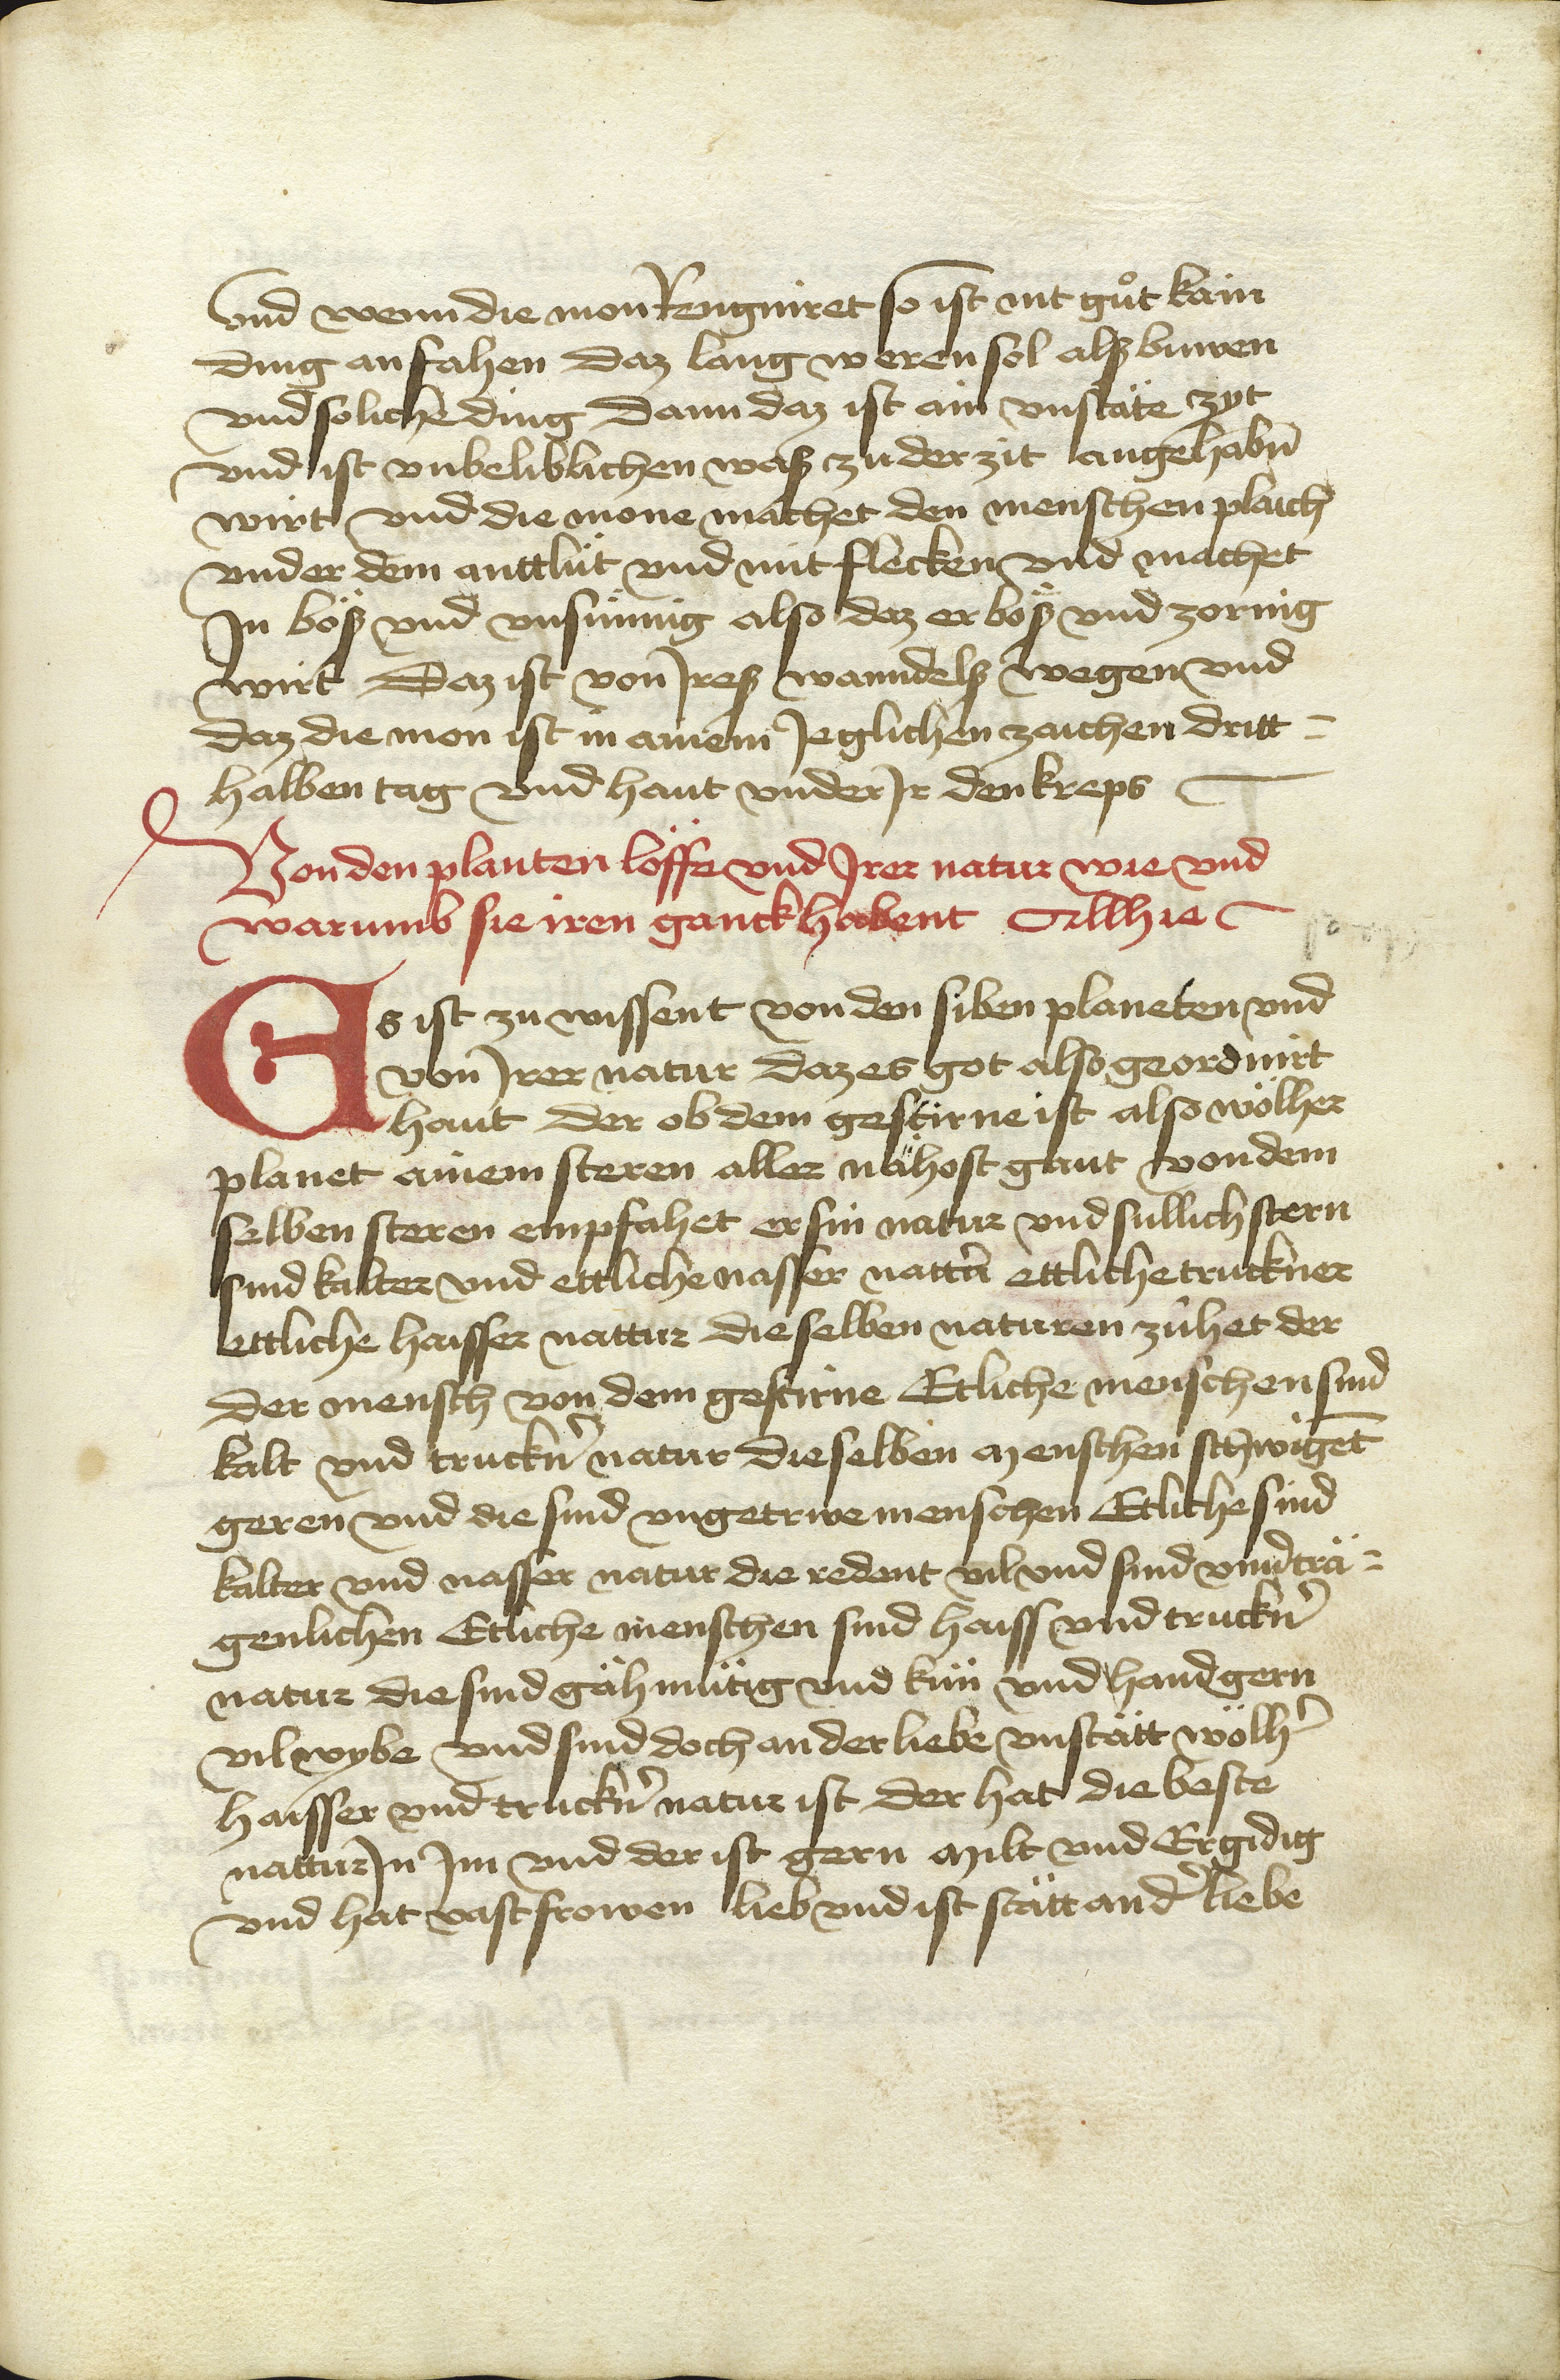 vnd wenn die mon Rengniret so ist nit gůt kain
ding an fahen daz lang weren sol alß buwen
vnd soliche ding Dann daz ist ain vnstäte zyt
vnd ist vnbeliblichen waß zu der zit angehabn̄
wirt vnd die mone machet den menschen plaich
vnder dem anttlüt vnd mit flecken vnd machet
Jn böß vnd vnsinnig also daz er böß vnd zornig
wirt Daz ist von Jreß wanndelß wegen vnd
daz die mon ist in ainem Jeglichen zaichen dritt=
halben tag vnd haut vnder Jr den kreps
Von den planten löffe vnd Jrer natur wie vnd
warumb sie iren ganck habent Allhie
Es ist zu wissent von den siben planeten vnd
von Jrer natur daz es got also geordnirt
haut der ob dem gestirne ist also wölher
planet ainem steren aller nähost gaut von dem
selben steren empfahet er sin natur vnd sullich stern
sind kalter vnd ettliche nasser nattr̄ ettliche truckner
ettliche haisser nattur die selben naturen zühet der
der mensch von dem gestirne Etliche menschen sind
kalt vnd truckn̄ natur die selben menschen schwigēt
geren vnd die sind vngetrwe menschen Etliche sind
kalter vnd nasser natur die redent vil vnd sind vnd̄trä=
genlichen Etliche menschen sind haiss vnd truckn̄
natur die sind gächmütig vnd kün vnd hand gern
vil wybe vnd sind doch an der liebe vnstätt wölh̄
haisser vnd truckn̄ natur ist der hat die beste
nattur Jn Jm vnd der ist gern milt vnd Ergidig
vnd hat vast frowen lieb vnd ist stätt an d̄ liebe